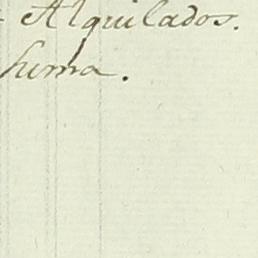 Alquilados.
hima.